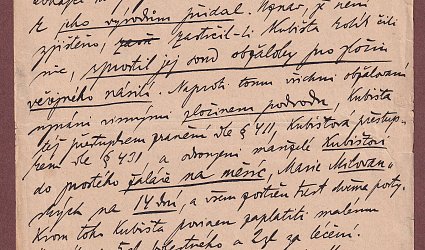 z jeho vyrodin přidal. Uznav, že není
zjištěno, zastřelil-li Kubišta Kolík čili
nic, zprostil jej soud obžaloby pro zločin
veřejného násilí. Naproti tomu všichni obžalovaní
uznáni vinnými zločinem podvodu, Kubišta
též přestupkem zranění dle § 411, Kubištová přestup-
kem dle § 431, a odsouzeni manželé Kubištovi
do prostého žaláře na měsíc, Marie Milovan-
ských na 14 dní, a všem potvrzen trest dvěma posty.
Krom toho Kubišta povinen zaplatiti malému
bolestného a 2 zl za léčení.